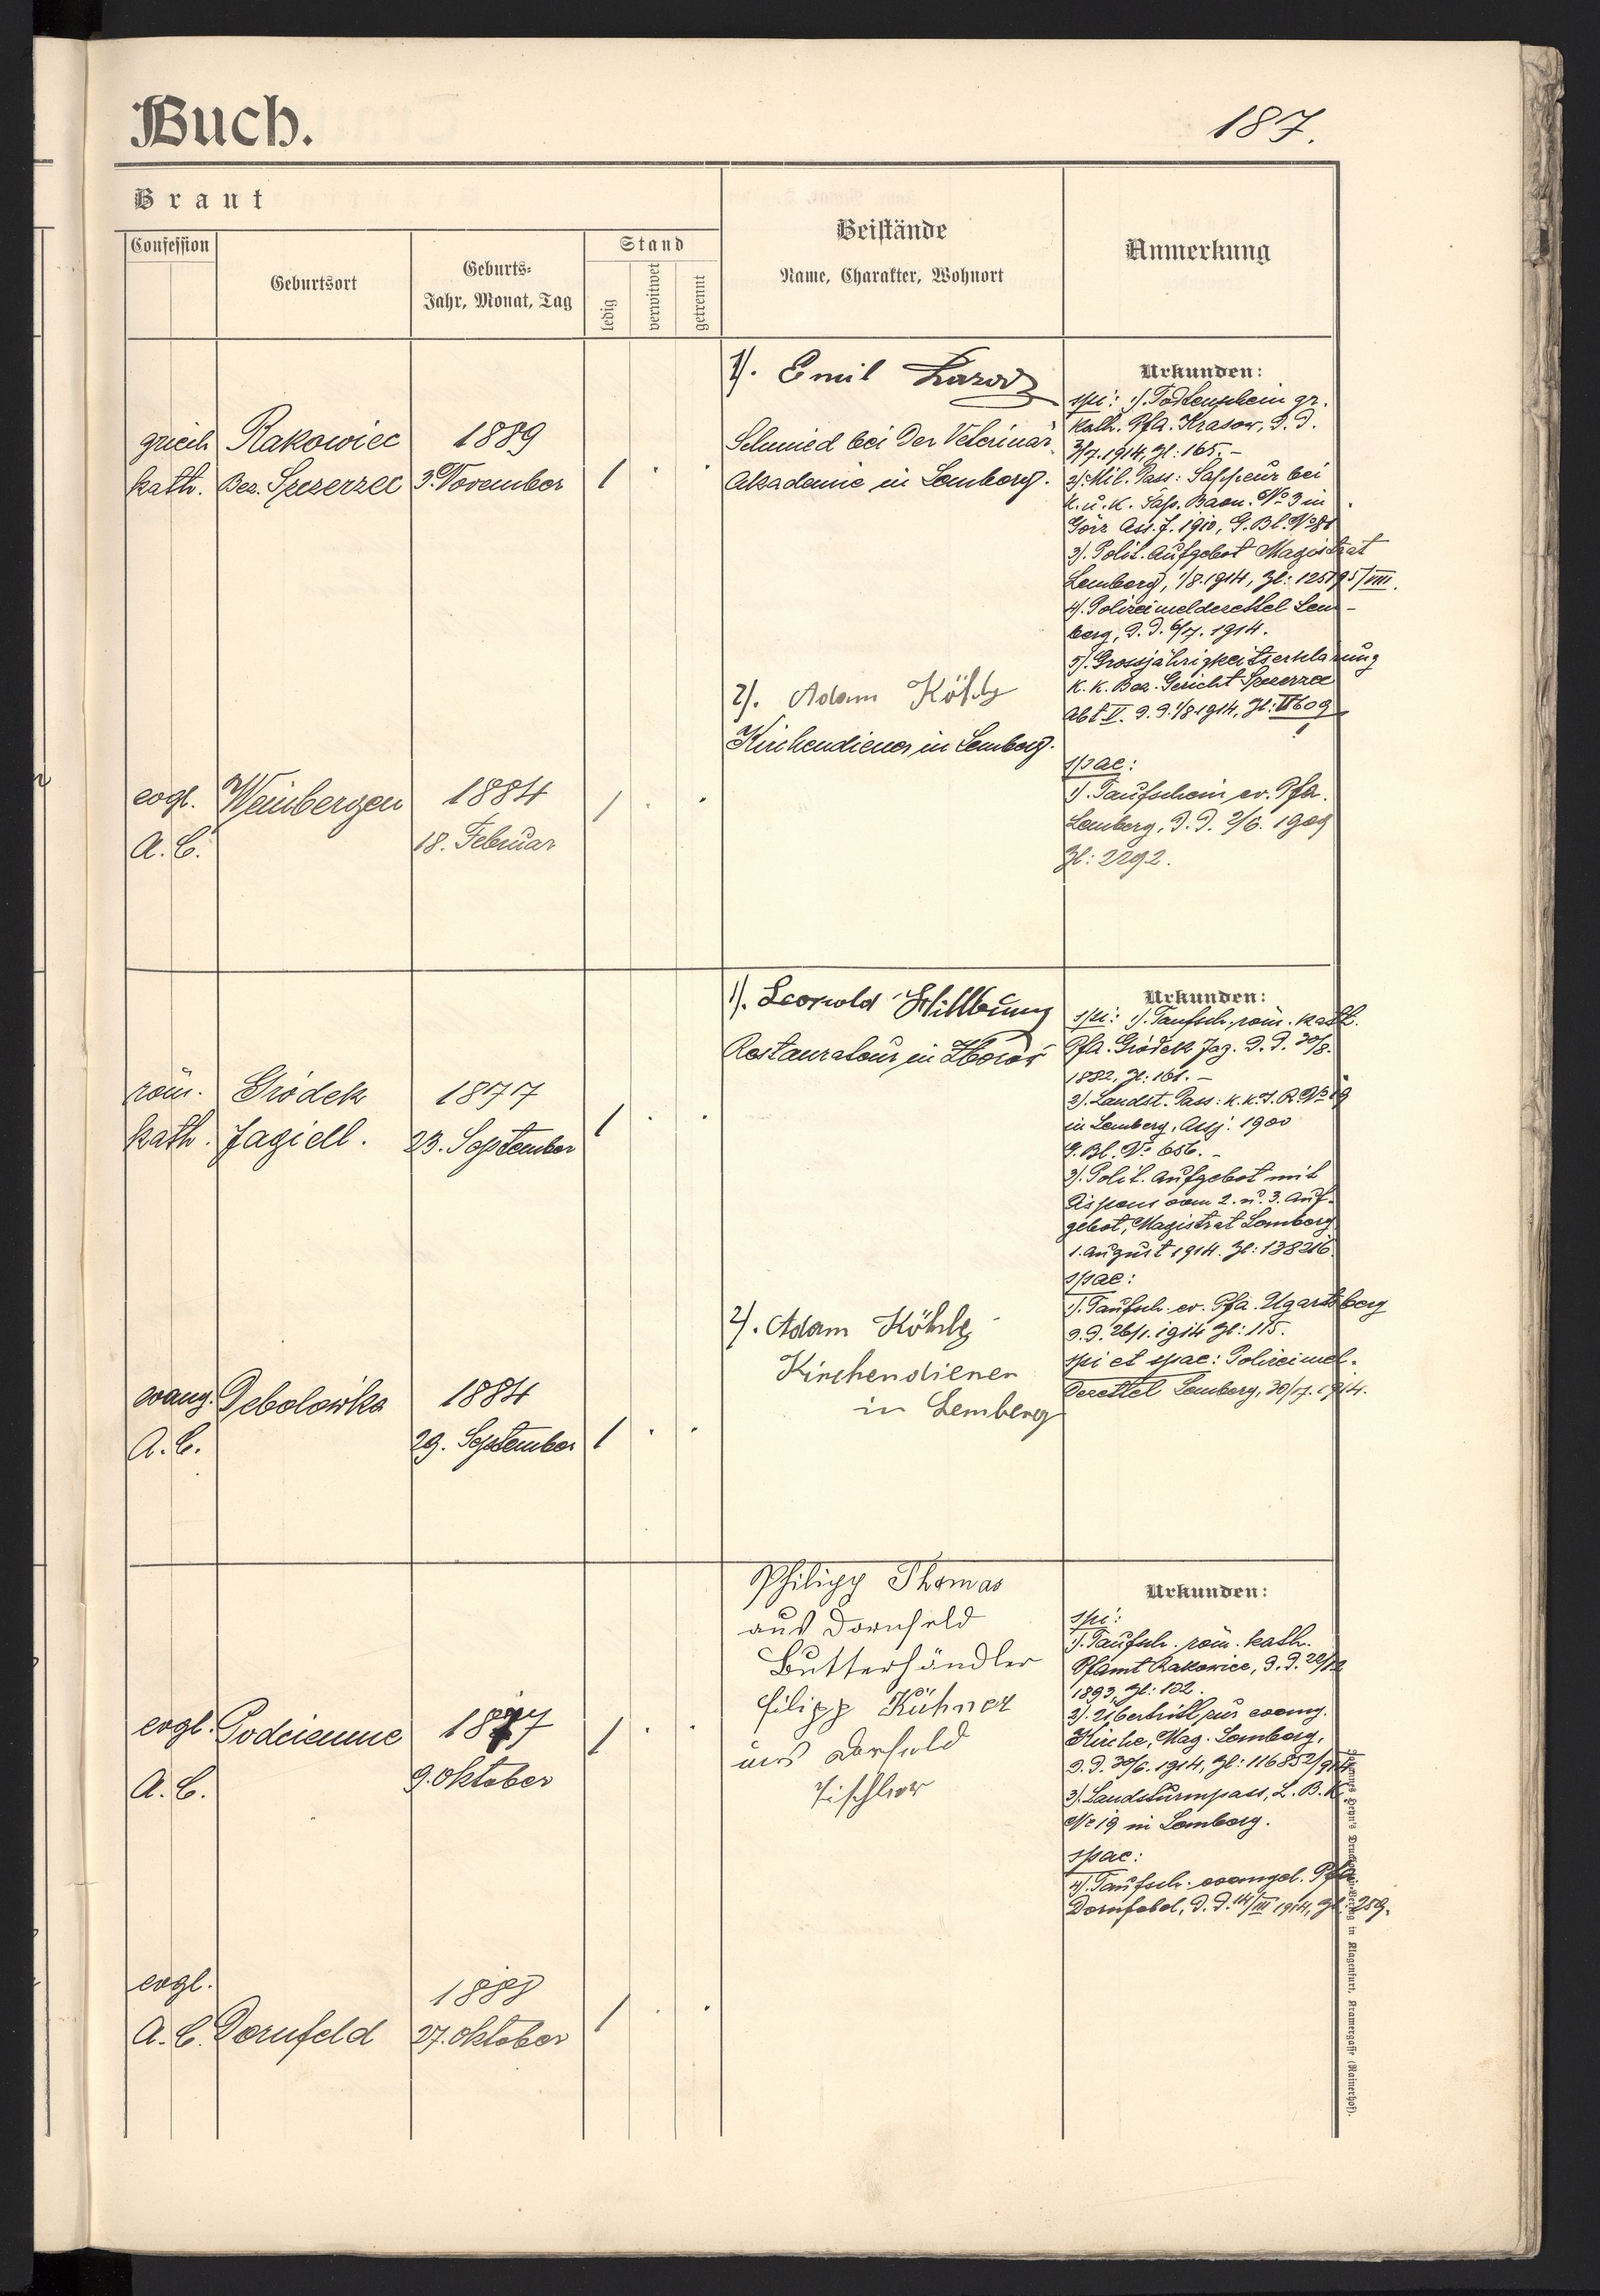 Buch.
187.
Braut
Confession
Geburtsort
Geburts-
Jahr, Monat, Tag
Stand
ledig
verwitwet
getrennt
Beistände
Name, Charakter, Wohnort
Anmerkung
griech. Rakowiec 1889
kath. Bez. Szczerzec 3. November
1). Emil
Schmied bei der Veterinär-
Akademie in Lemberg.
2). Adam Köhly
Kirchendiener in Lemberg.
Urkunden:
spi: 1). Todtenschein gr.
kath. Pfa. Krasow, d. d.
3/7. 1914, Zl: 165. –
2). Mil. Pass: Sappeur bei
k. u. k. Sap. Baon. No 3 in
Görz Ass. J. 1910, G. Bl. No 81
3). Polit. Aufgebot Magistrat
Lemberg, 1/8. 1914, Zl: 125195/VIII.
4). Polizeimeldezettel Lem-
berg, d. d. 6/7. 1914.
5). Grossjährigkeitserklärung
k. k. Bez. Gericht Szczerzec
Abt II. d. d. 1/8 1914, Zl:
spae:
1). Taufschein ev. Pfa.
Lemberg, d. d. 2/6. 1909
Zl: 2292.
evgl. Weinbergen 1884
A. C. 18. Februar
röm. Gródek 1877
kath. Jagiell. 23. September
1). Leopold
Restaurateur in
2). Adam Köhly
Kirchendiener
in Lemberg
Urkunden:
spi: 1). Taufsch. röm. kath.
Pfa. Gródek Jag. d. d. 30/8.
1882, Zl: 161. –
2). Landst. Pass: k. k. J. R. No 19
in Lemberg, Assj: 1900
G. Bl. No 656. –
3). Polit. Aufgebot mit
Dispens vom 2. u. 3. Auf-
gebot, Magistrat Lemberg
1. August 1914. Zl: 138216.
spae:
1). Taufsch. ev. Pfa. Ugartsberg
d. d. 26/1. 1914 Zl: 115.
spi et spae: Polizeimel-
dezettel Lemberg, 30/7. 1914.
evang. Debolówka 1884
A. C. 29. September
evgl. Podciemne 1877
A. C. 9. Oktober
Philipp Thomas
aus Dornfeld
Butterhändler
Filipp Kühner
aus Dornfeld
Tischler
Urkunden:
spi:
1). Taufsch. röm. kath.
Pfamt Rakowice, d. d. 22/12
1893, Zl: 102.
2). Übertritt zur evang.
Kirche, Mag. Lemberg,
d. d. 30/6. 1914, Zl: 116852/914
3). Landsturmpass, L. B. K.
No 19 in Lemberg.
spae:
4). Taufsch. evangel. Pfa.
Dornfeld, d. d. 14/III 1914, Zl: 259.
evgl. 1888
A. C. Dornfeld 27. Oktober
Johannes Heyn's Druckerei-Verlag in Klagenfurt, Kramergasse (Rainerhof).